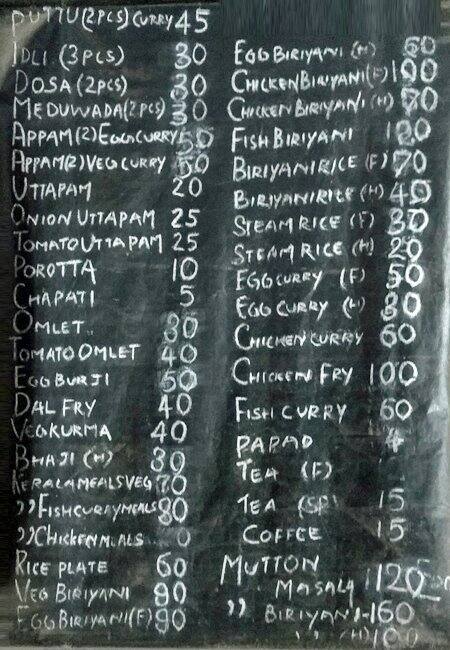 PUTTU(2PCS) CURRY 45
IDLI (3PCS) 30
DOSA (2PCS) 30
MEDUWADA(2PCS) 30
APPAM(2)EGGCURRY 50
APPAM(2)VEGCURRY 50
UTTAPAM 20
ONION UTTAPAM 25
TOMATO UTTAPAM 25
POROTTA 10
CHAPATI 5
OMLET 30
TOMATO OMLET 40
EGG BURJI 50
DAL FRY 40
VEGKURMA 40
BHAJI (H) 30
KERALAMEALSVEG 70
,,FISHCURRYMEALS
,,CHICKENMEALS
RICE PLATE 60
VEG BIRIYANI
EGGBIRIYANI(F)
EGG BIRIYANI (H) 60
CHICKEN BIRIYANI(F) 100
CHICKEN BIRIYANI (H) 70
FISH BIRIYANI
BIRIYANI RICE (F) 70
BIRIYANI RICE (H) 40
STEAM RICE (F) 30
STEAM RICE (H) 20
EGG CURRY (F) 50
EGG CURRY (H) 30
CHICKEN CURRY 60
CHICKEN FRY 100
FISH CURRY 60
PAPAD 4
TEA (F)
TEA (SP) 15
COFFEE 15
MUTTON
MASALA 120
,, BIRIYANI-160
,, (H) 100